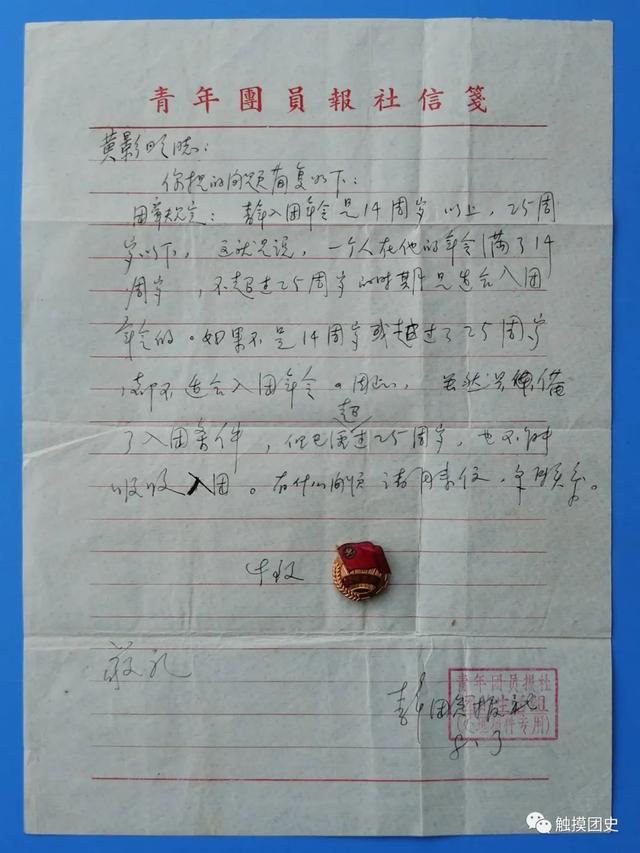 青年團員報社信箋
黄影 同志：
你提的问题简复如下：
团章规定：青年入团年令是14周岁以上，25周
岁以下，这就是说，一个人在他的年令满了14
周岁，不超过25周岁的时期是适合入团
年令的。如果不是14周岁或超过了25周岁
都不适合入团年令。因此，虽然 俱备
了入团条件，但已超过25周岁，也不能
吸收入团。有什么问题请再来信，多联系。
此致
敬礼
青年团员报社
8.3
青年团员报社
(处理信件专用)
触摸团史